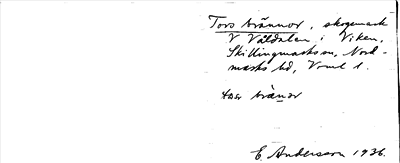 Tors brännor, skogsmark
V Våldalen i Viken,
Skillingmarks sn, Nord-
marks hd, Vrml l.
brännor
E. Andersson 1936.